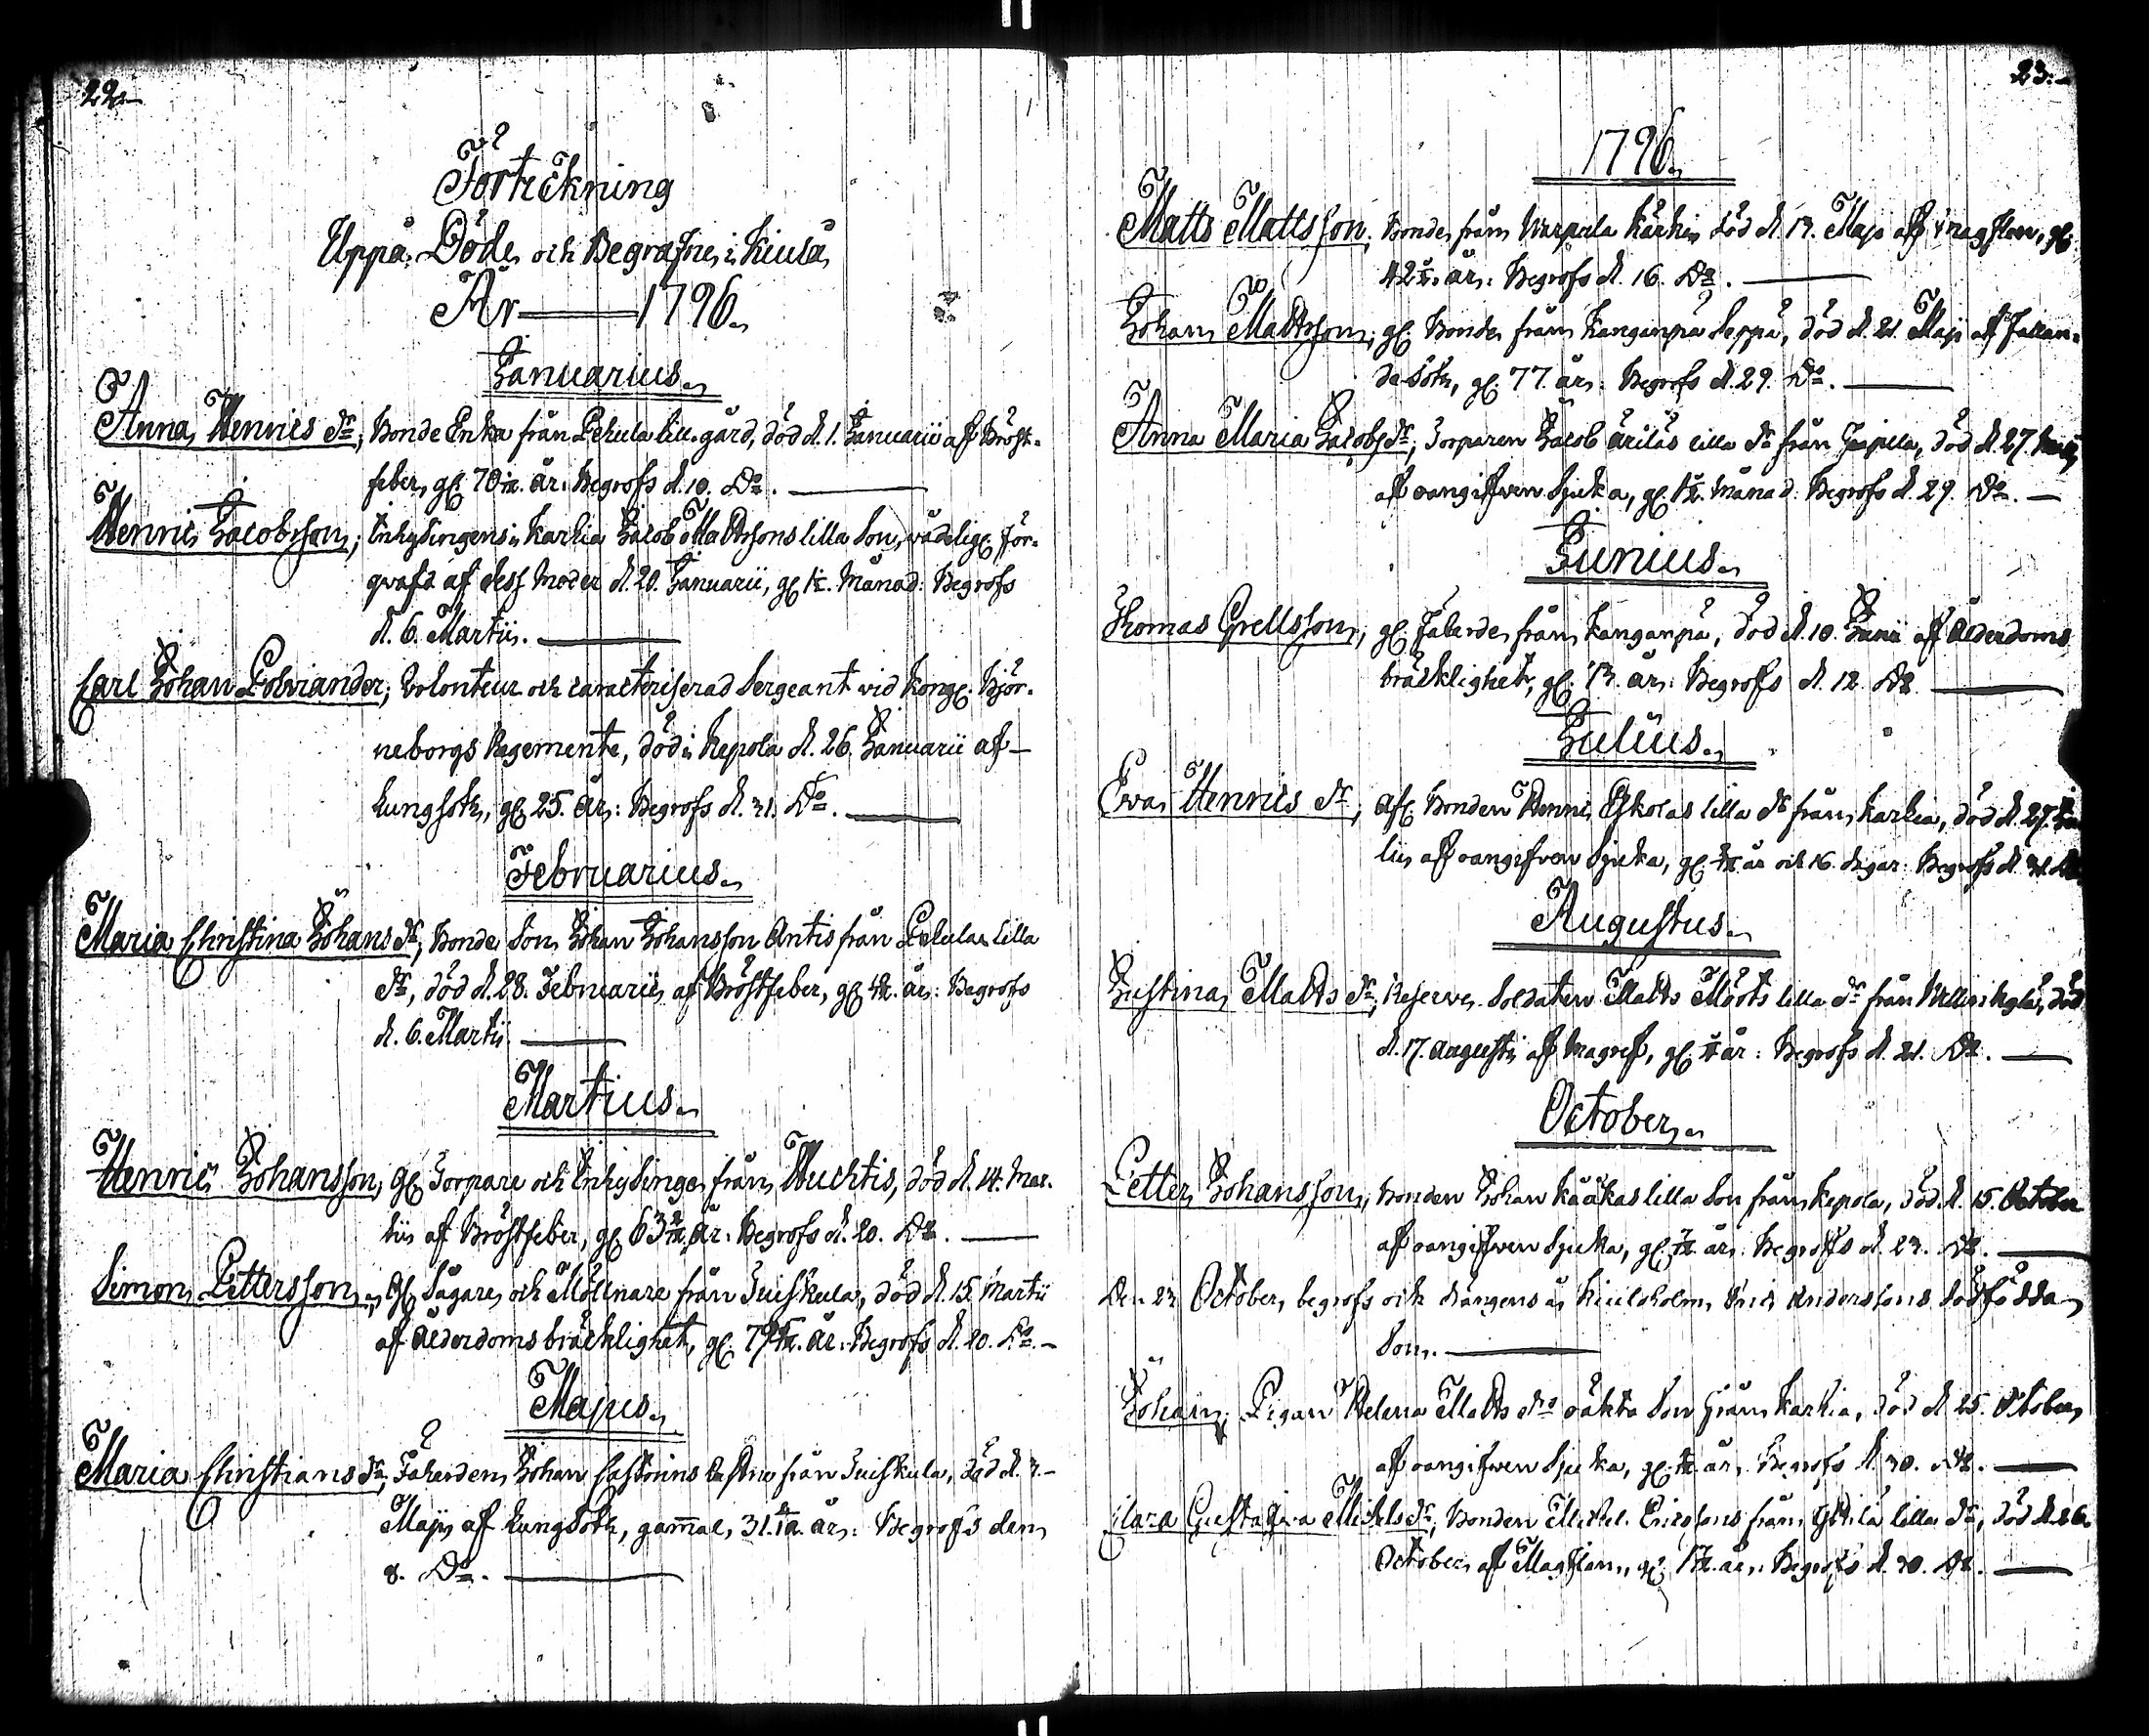 22.
Förteckning
Uppå Döde och Begrafne i Kiula
År 1796.
Januarius.
Anna Henrics dr; Bonde Enka från Pehula Lillgård, död d. 1. Januarii af Bröst-
feber, gl. 70 år: Begrofs d. 10. Do.
Henric Jacobsson; Inhysingens i Karhia Jacob Mattssons lilla Son, wådelig: för-
qwafd af dess Moder d. 20. Januarii, gl. Månad: Begrofs
d. 6. Martii.
Carl Johan Polviander; Volonteur och caracteriserad Sergeant vid Kongl. Björ-
neborgs Regemente, död i Kepola d. 26. Januarii af
Lungsoth, gl. 25. år: Begrofs d. 31. Do.
Februarius.
Maria Christina Johans dr; Bonde Son Johan Johansson Antis från Pehula lilla
dr, död d. 28. Februarii af Bröstfeber, gl. år: Begrofs
d. 6. Martii
Martius.
Henric Johansson; gl. Torpare och Inhysinge från Huchtis, död d. 14. Mar-
tii af Bröstfeber, gl. 63 år: Begrofs d. 20. Do.
Simon Pettersson; Gl. Sågare och Möllnare från Tuiskula, död d. 15. Martii
af ålderdoms bräcklighet, gl. 79 år: Begrofs d. 20. Do.
Majus.
Maria Christians dr; Johan från Tuiskula, död d. 3.
Maji af Lungsoth, gammal, 31. år: Begrofs den
8. Do.
23.
1796.
Matts Mattsson; Bonde från Karhi, död d. 13. Maji af gl.
42 år: Begrofs d. 16. Do.
Johan Mattsson; gl. Bonde från Kanganpä Seppä, död d. 21. Maji af fallan-
de Soth, gl. 77. år: Begrofs d. 29. Do.
Anna Maria Jacobs dr; Torparen Jacob lilla dr från död d. 27. Maji
af oangifwen Sjuka, gl. Månad: Begrofs d. 29. Do.
Junius.
Thomas Grellsson; gl. från Kanganpä, död d. 10. Junii af ålderdoms
bräcklighet, gl. år: Begrofs d. 12. Do
Julius.
Ewa Henrics dr; afl. Bonden Henric Eskolas lilla dr från Karhia, död d. 27. Ju-
lii af oangifwen Sjuka, gl. år och 16. dagar: Begrofs d. 31. Do.
Augustus.
Justina Matts dr; Reserve Soldaten Matts Mörts lilla dr från död
d. 17. Augusti af Magref, gl. år: Begrofs d. 21. Do.
October.
Petter Johansson; Bonden Johan Kääkas lilla Son från Kepola, död d. 15. October
af oangifwen Sjuka, gl. år: Begrofs d. 23. Do.
Den 23 October, begrofs ock Drängens å Kiuloholm Eric Anderssons dödfödda
Son.
Johan; Pigan Helena Matts drs oäkta Son från Karhia, död d. 25. October
af oangifwen Sjuka, gl. år: Begrofs d. 30. Do.
Clara Gustava Michels dr; Bonden Michel Ericssons från lilla dr, död d. 26.
October af gl. år: Begrofs d. 30. Do.